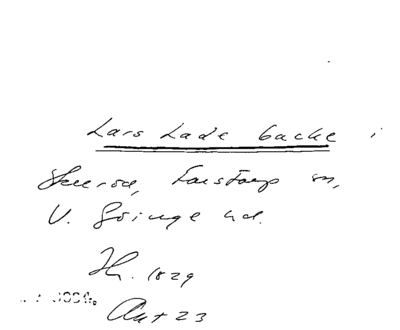 Lars Lade backe i
Skeröd, Farstorp sn,
V. Göinge hd.
1829
Ant 23